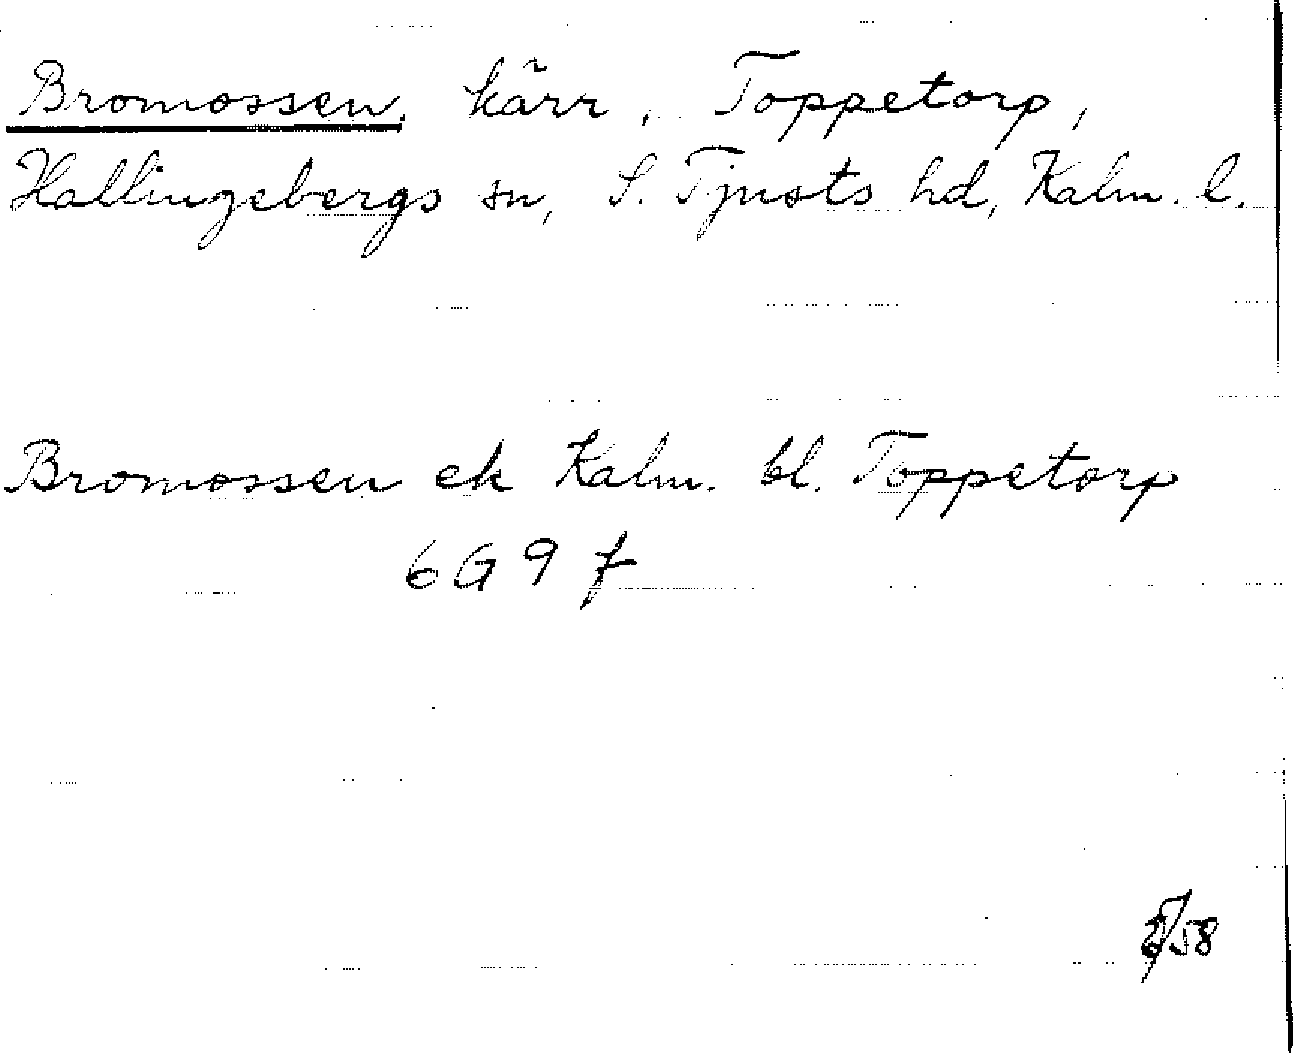 Bromossen, kärr, Toppetorp,
Hallingebergs sn, S. Tjusts hd, Kalm. l.
Bromossen ek Kalm. bl. Toppetorp
6 G 9 f